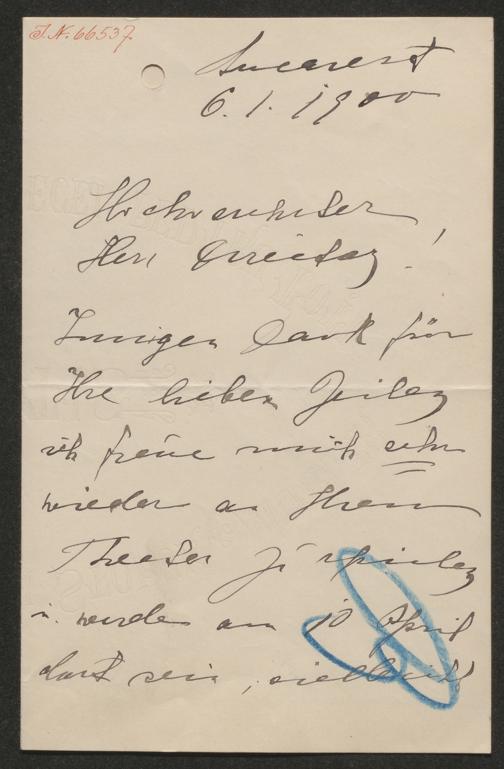 I.N. 66537
Bucarest
6. 1. 1900
Hochverehrter
Herr Direktor!
Innigen Dank für
Ihre lieben Zeilen
ich freue mich sehr
wieder an Ihrem
Theater zu spielen
u. werde am 10 April
dort sein, vielleicht